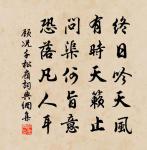 終日吟天風
有時天籟止
問渠何旨意
恐落凡人耳
顧況千松嶺詞典網集